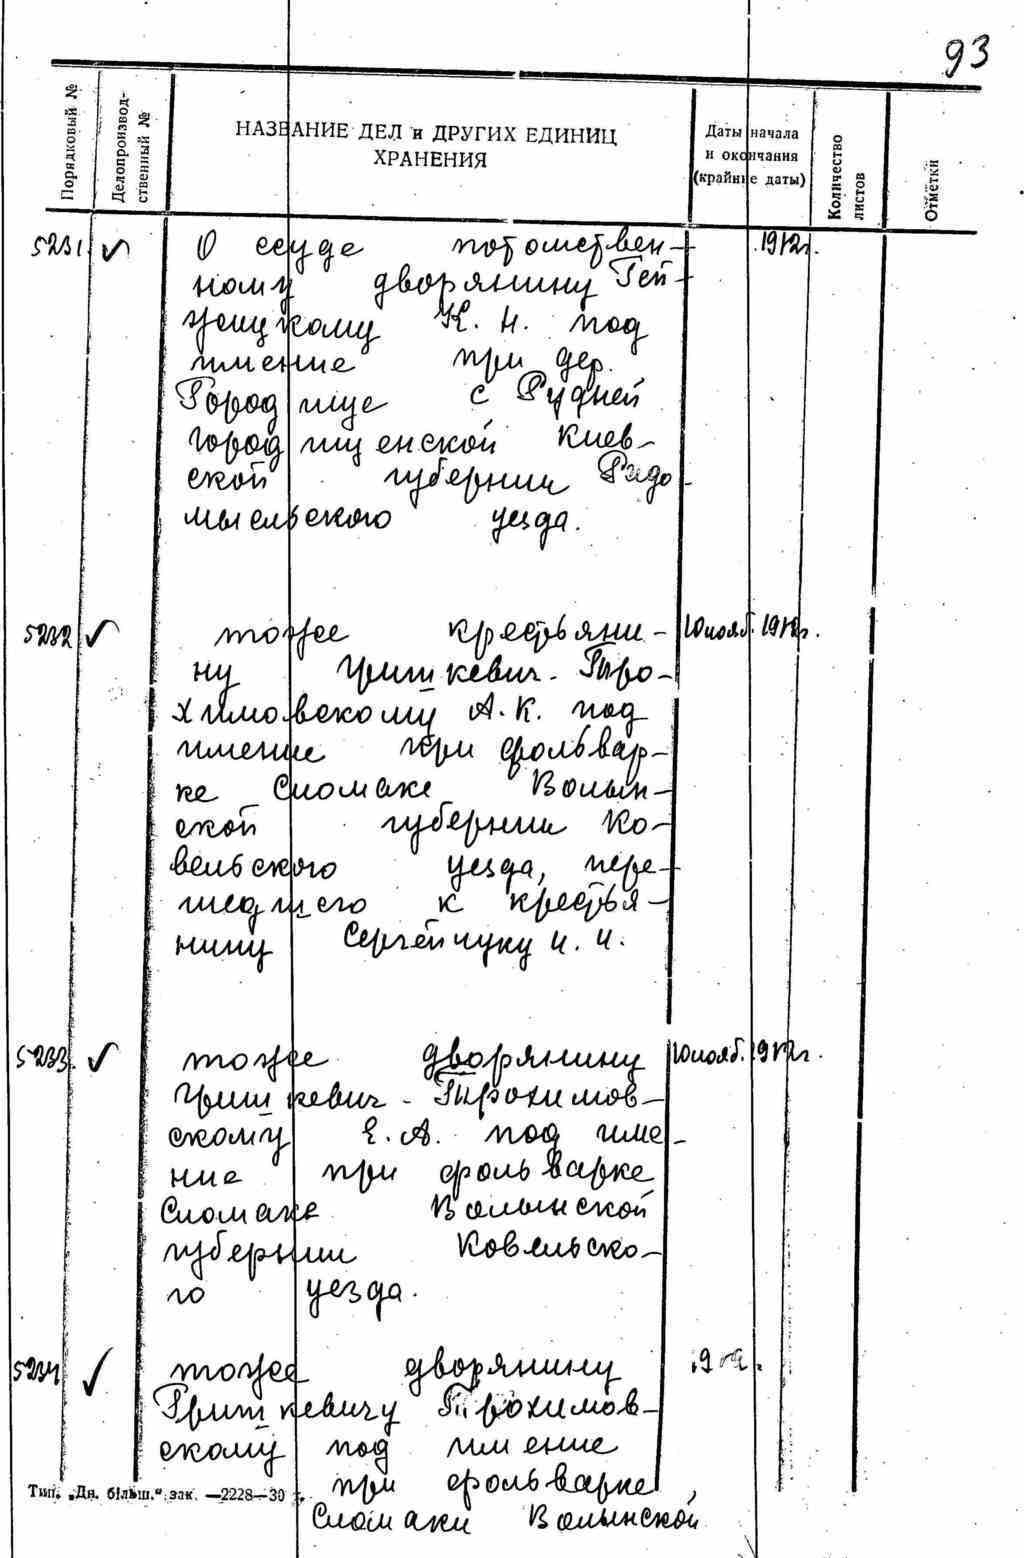 93
Порядковый №
Делопроизвод-
ственный №
НАЗВАНИЕ ДЕЛ и ДРУГИХ ЕДИНИЦ
ХРАНЕНИЯ
Даты начала
и окончания
(крайние даты)
Количество
листов
Отметки
5231. ✓ О ссуде потомствен- 1912г.
ному дворянину Гей-
жецукому К. Н. под
имение при дер.
Городище с Рудней
городищенской Киев-
ской губернии Радо-
мысельского уезда.
5232 ✓ тоже крестьяни- 10 нояб. 1912г.
ну Гришкевич-Тро-
химовскому А. К. под
имение при фольвар-
ке Сломаке Волын-
ской губернии Ко-
вельского уезда, пере-
шедшего к крестья-
нину Сергейчуку И. И.
5233. ✓ тоже дворянину 10 нояб. 1912г.
Гришкевич-Трохимов-
скому Е. А. под име-
ние при фольварке
Сломаке Волынской
губернии Ковельско-
го уезда.
5234 ✓ тоже дворянину
Гришкевичу Трохимов-
скому под имение
при фольварке
Тип. „Дн. більш.“ зак. —2228—30
Сломаки Волынской